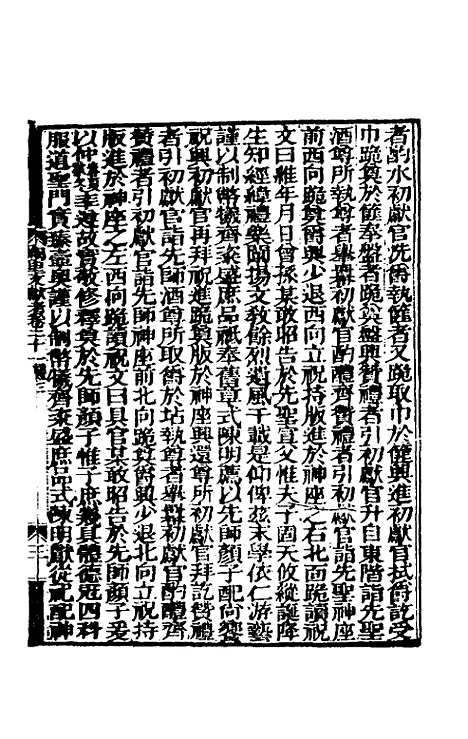 者酌水初獻官洗爵執篚者又跪取巾於篚興進初獻官拭爵訖受
巾跪奠於篚奉盤者跪奠盤興贊禮者引初獻官升自東階詣先聖
酒尊所執尊者舉羃初獻官酌醴齊贊禮者引初獻官詣先聖神座
前西向跪奠爵興少退西向立祝持版進於神座之右北面跪讀祝
文曰維年月日曾孫某敢昭告於先聖宣父惟夫子固天攸縱誕降
生知經緯禮樂闡揚文敎餘烈遺風千載是仰俾茲末學依仁游藝
謹以制幣犧齊粢盛庶品祇奉舊章式陳明薦以先師顏子配尚饗
祝興初獻官再拜祝進奠版於神座興還尊所初獻官拜訖贊禮
者引初獻官詣先師酒尊所取爵於坫執尊者舉羃初獻官酌醴齊
贊禮者引初獻官詣先師神座前北向跪奠爵興少退北向立祝持
版進於神座之左西向跪讀祝文曰具官某敢昭告於先師顏子爰
以仲春率遵故實敬修釋奠於先師顏子惟子庶幾具體德冠四科
服道聖門實臻壼奧謹以制幣犧齊粢盛庶品式陳明獻從祀配神